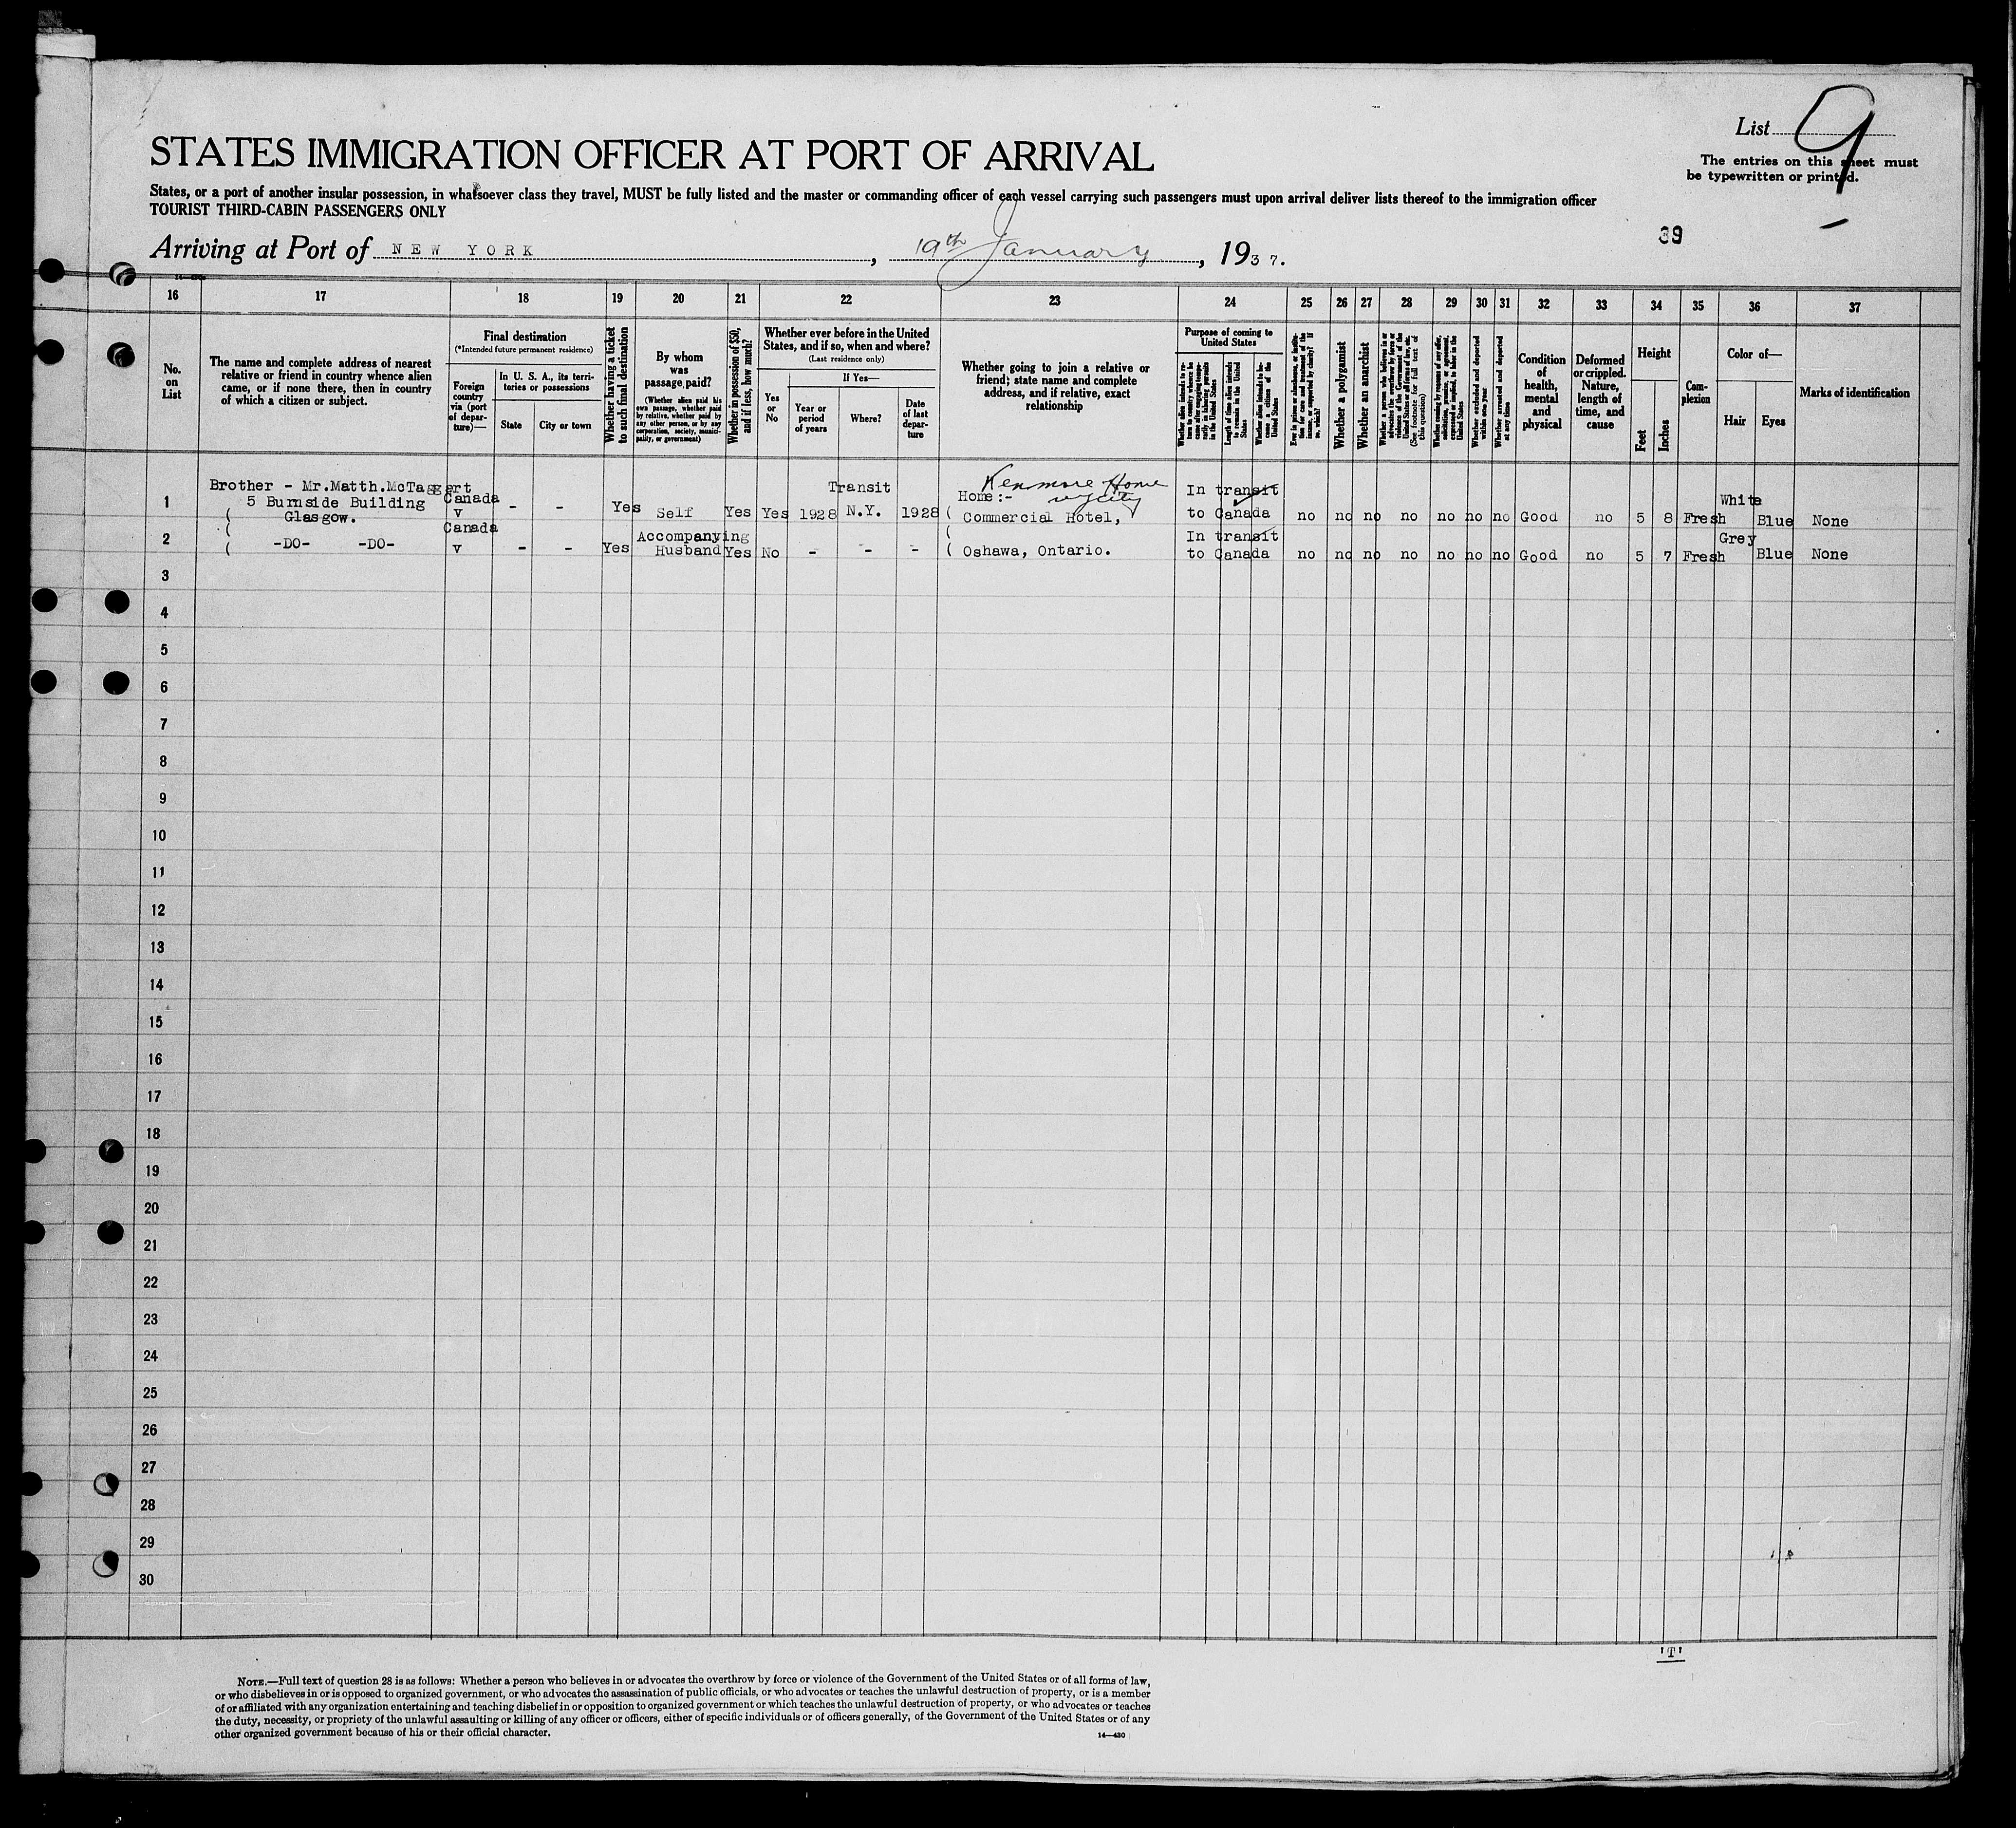 List 9
The entries on this sheet must
be typewritten or printed.
STATES IMMIGRATION OFFICER AT PORT OF ARRIVAL
States, or a port of another insular possession, in whatsoever class they travel, MUST be fully listed and the master or commanding officer of each vessel carrying such passengers must upon arrival deliver lists thereof to the immigration officer
TOURIST THIRD-CABIN PASSENGERS ONLY
39
Arriving at Port of NEW YORK, 19th January, 1937.
16 17 18 19 20 21 22 23 24 25 26 27 28 29 30 31 32 33 34 35 36 37
No.
on
List
The name and complete address of nearest
relative or friend in country whence alien
came, or if none there, then in country
of which a citizen or subject.
Final destination
(*Intended future permanent residence)
Foreign
country
via (port
of depar-
ture)—
In U. S. A., its terri-
tories or possessions
State
City or town
Whether having a ticket
to such final destination
By whom
was
passage paid?
(Whether alien paid his
own passage, whether paid
by relative, whether paid by
any other person, or by any
corporation, society, munici-
pality, or government)
Whether in possession of $50,
and if less, how much?
Whether ever before in the United
States, and if so, when and where?
(Last residence only)
Yes
or
No
If Yes—
Year or
period
of years
Where?
Date
of last
depar-
ture
Whether going to join a relative or
friend; state name and complete
address, and if relative, exact
relationship
Purpose of coming to
United States
Whether alien intends to re-
turn to country whence he
came after engaging tempo-
rarily in laboring pursuits
in the United States
Length of time alien intends
to remain in the United
States
Whether alien intends to be-
come a citizen of the
United States
Ever in prison or almshouse, or institu-
tion for care and treatment of the
insane, or supported by charity? If
so, which?
Whether a polygamist
Whether an anarchist
Whether a person who believes in or
advocates the overthrow by force or
violence of the Government of the
United States or all forms of law, etc.
(See footnote for full text of
this question)
Whether coming by reason of any offer,
solicitation, promise, or agreement,
expressed or implied, to labor in the
United States
Whether excluded and deported
within one year
Whether arrested and deported
at any time
Condition
of
health,
mental
and
physical
Deformed
or crippled.
Nature,
length of
time, and
cause
Height
Feet
Inches
Com-
plexion
Color of—
Hair
Eyes
Marks of identification
Kenmore Home
Brother - Mr.Matth.McTaggert Transit Home:- In transit White
1 ( 5 Burnside Building Canada v - - Yes Self Yes Yes 1928 N.Y. 1928 ( Commercial Hotel, to Canada no no no no no no no Good no 5 8 Fresh Blue None
Glasgow.
( Canada Accompanying ( In transit Grey
2 ( -DO- -DO- v - - Yes Husband Yes No - - - ( Oshawa, Ontario. to Canada no no no no no no no Good no 5 7 Fresh Blue None
3
4
5
6
7
8
9
10
11
12
13
14
15
16
17
18
19
20
21
22
23
24
25
26
27
28
29
30
'T'
NOTE.—Full text of question 28 is as follows: Whether a person who believes in or advocates the overthrow by force or violence of the Government of the United States or of all forms of law,
or who disbelieves in or is opposed to organized government, or who advocates the assassination of public officials, or who advocates or teaches the unlawful destruction of property, or is a member
of or affiliated with any organization entertaining and teaching disbelief in or opposition to organized government or which teaches the unlawful destruction of property, or who advocates or teaches
the duty, necessity, or propriety of the unlawful assaulting or killing of any officer or officers, either of specific individuals or of officers generally, of the Government of the United States or of any
other organized government because of his or their official character.
14—430